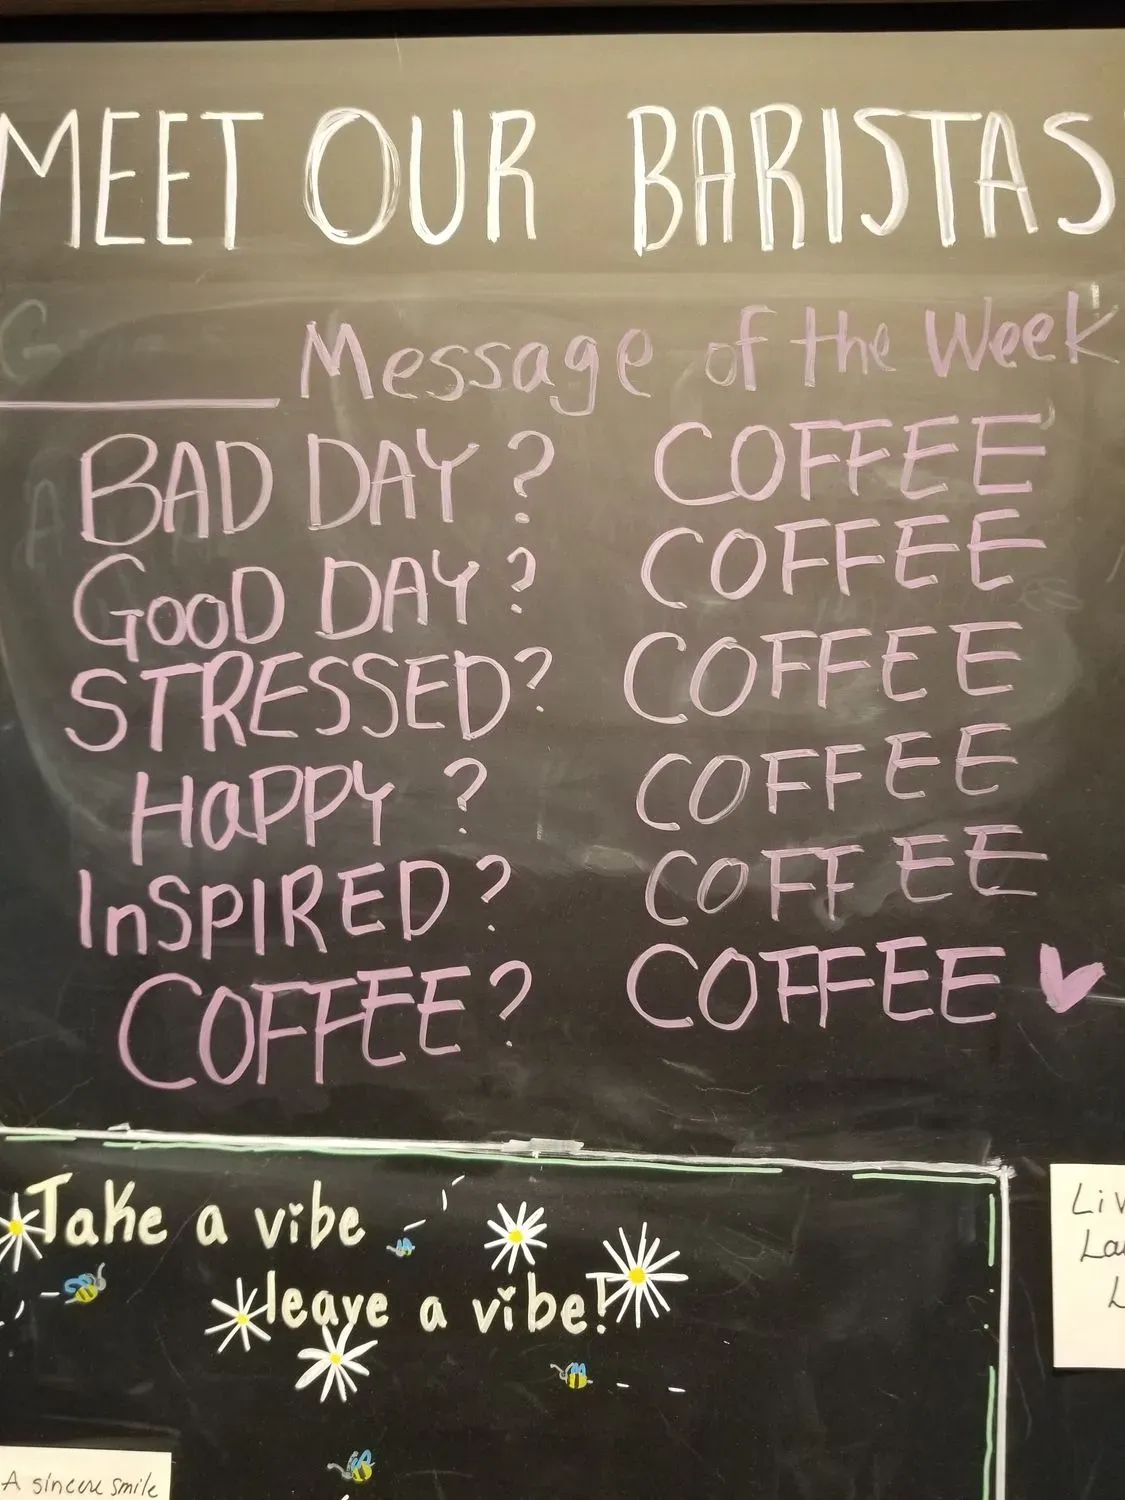 MEET OUR BARISTAS
Message of the Week
BAD DAY? COFFEE
GOOD DAY? COFFEE
STRESSED? COFFEE
HaPPY? COFFEE
InSPIRED? COFFEE
COFFEE? COFFEE
Take a vibe
leave a vibe!
A sincere smile